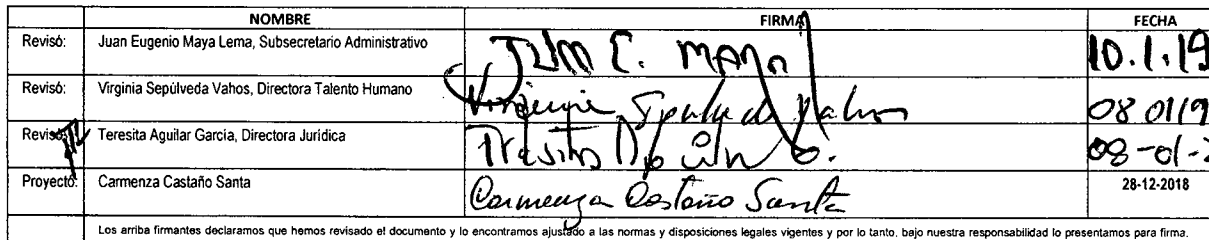 NOMBRE FIRMA FECHA
Revisó: Juan Eugenio Maya Lema, Subsecretario Administrativo Juan E. Maya 10.1.19
Revisó: Virginia Sepúlveda Vahos, Directora Talento Humano Virginia Sepulveda Vahos 08 01/19
Revisó: Teresita Aguilar García, Directora Jurídica Teresita 08-01-
Proyectó: Carmenza Castaño Santa Carmenza Castaño Santa 28-12-2018
Los arriba firmantes declaramos que hemos revisado el documento y lo encontramos ajustado a las normas y disposiciones legales vigentes y por lo tanto, bajo nuestra responsabilidad lo presentamos para firma.